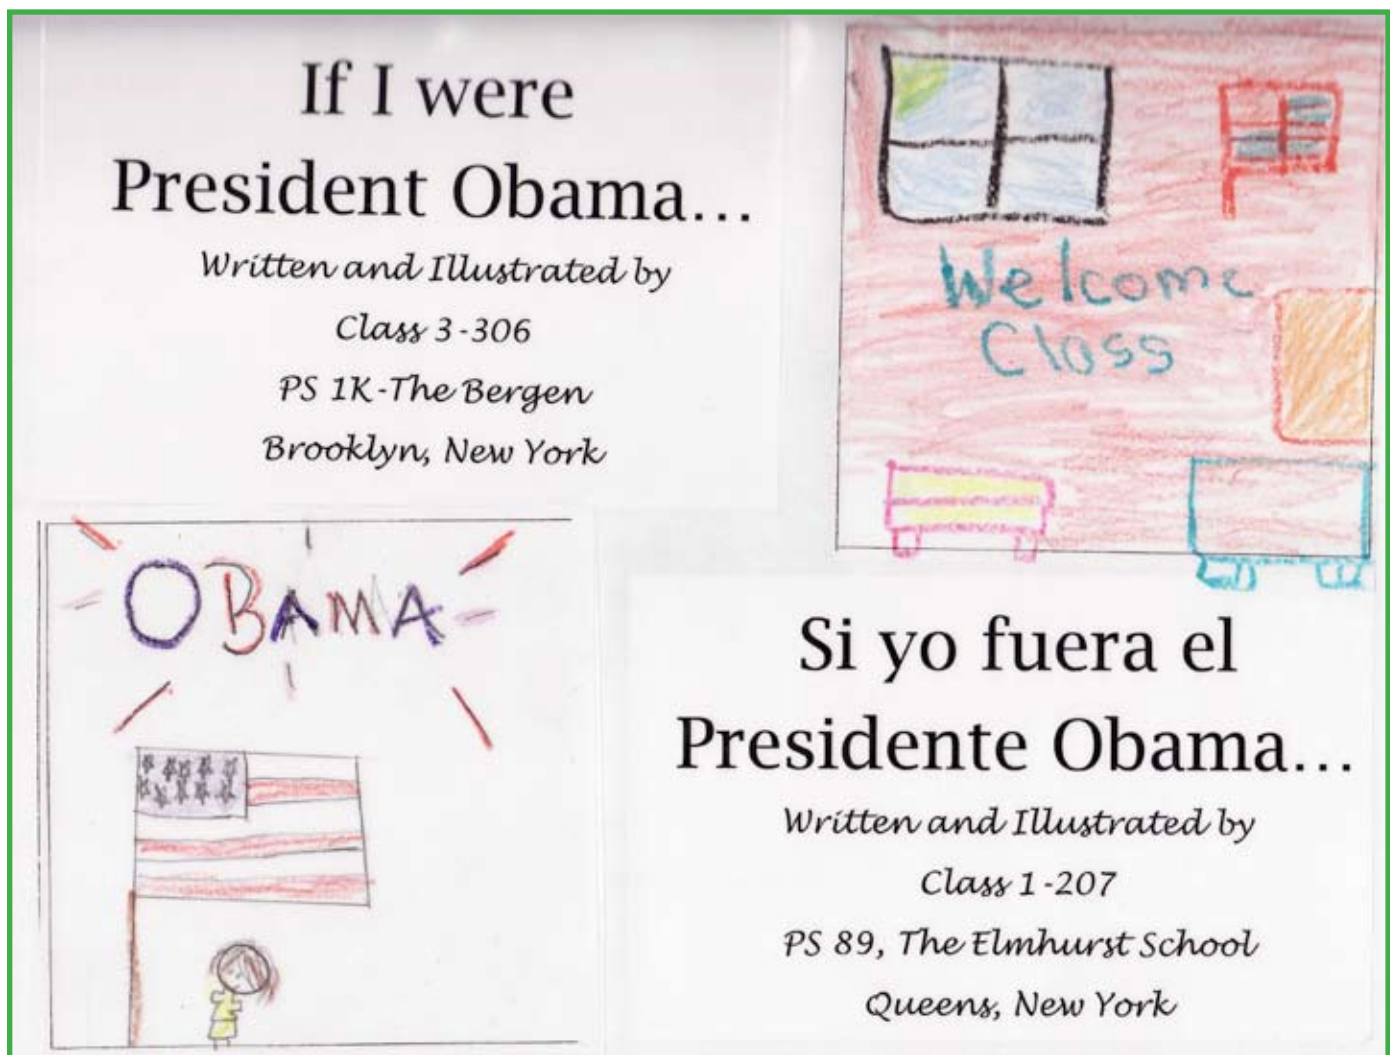 If I were
President Obama...
Written and Illustrated by
Class 3-306
PS 1K-The Bergen
Brooklyn, New York
Welcome
Class
OBAMA
Si yo fuera el
Presidente Obama...
Written and Illustrated by
Class 1-207
PS 89, The Elmhurst School
Queens, New York